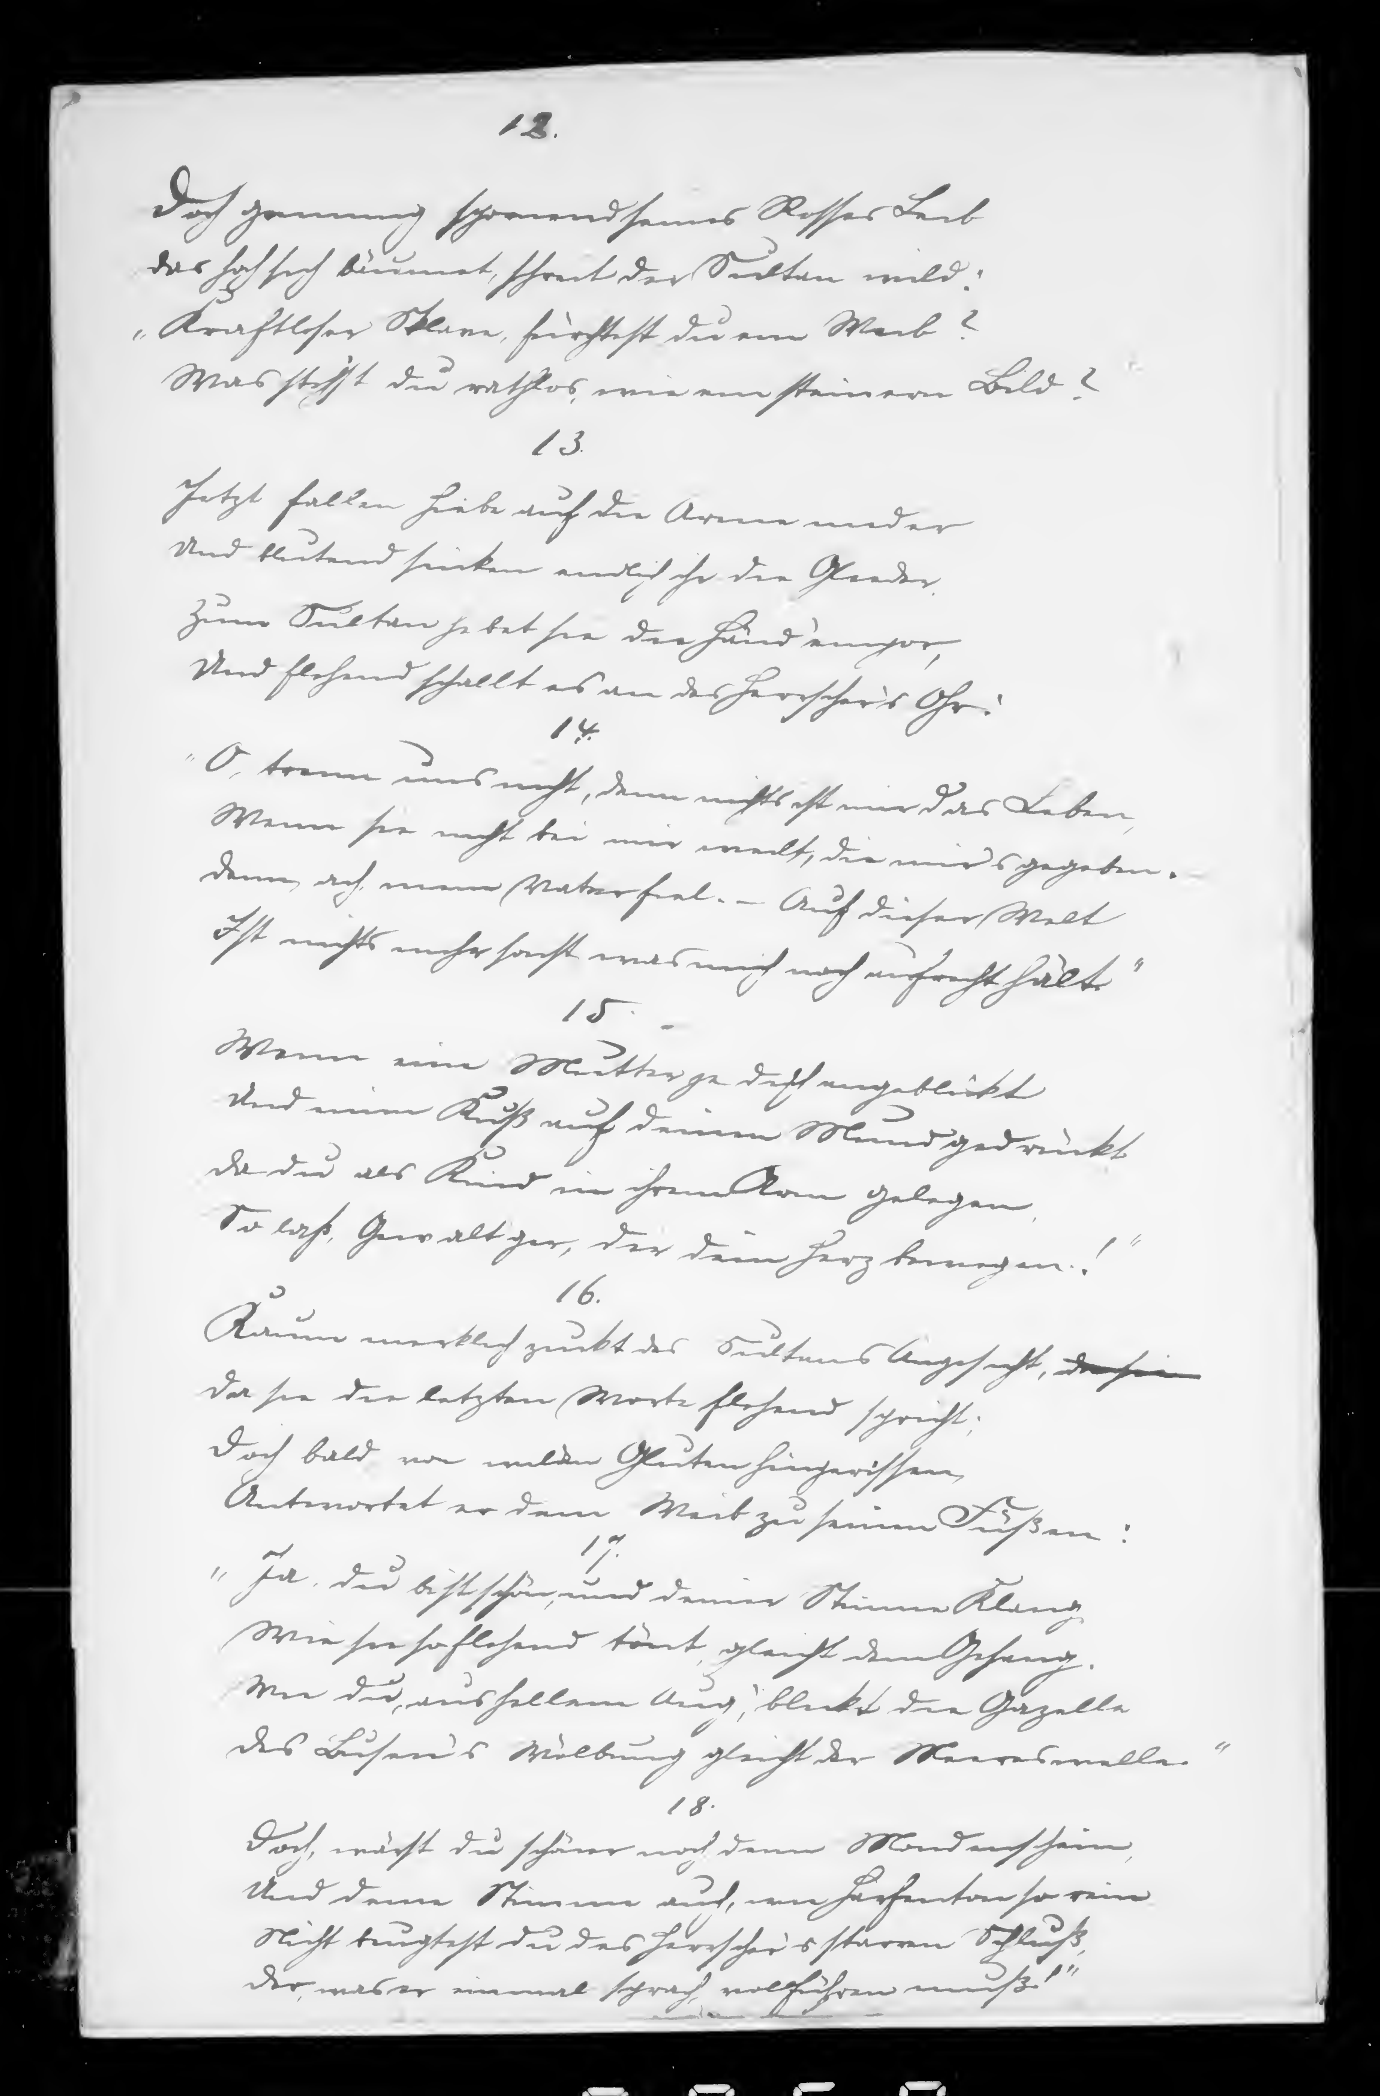 12.
Doch grimmig spornend seines Rosses Leib
das hoch sich bäumet, schreit der Sultan wild:
„Kraftloser Sklave, fürchtest du ein Weib?
Was stehst du rathlos, wie ein steinern Bild?
13.
Jetzt fallen Hiebe auf die Arme nieder
Und blutend sinken endlich ihr die Glieder.
Zum Sultan hebet sie die Händ' empor,
Und flehend schallt es an des Herrscher's Ohr:
14.
„O, trenn uns nicht, denn nichts ist mir das Leben,
Wenn sie nicht bei mir weilt, die mir's gegeben. –
denn, ach, mein Vater fiel. – Auf dieser Welt
Ist nichts mehr sonst was mich noch aufrecht hält."
15.
Wenn eine Mutter je dich angeblickt
Und einen Kuß auf deinen Mund gedrückt
da du als Kind in ihrem Arm gelegen,
So laß, Gewalt'ger, dir dein Herz bewegen.!"
16.
Kaum merklich zuckt des Sultans Angesicht, da sie
da sie die letzten Worte flehend spricht;
Doch bald von wilden Gluten hingerissen,
Antwortet er dem Weib zu seinen Füßen:
17.
„Ja, du bist schön, und deiner Stimme Klang
Wie sie so flehend tönt, gleicht dem Gesang.
Wie du, aus hellem Aug', blickt die Gazelle
des Busen's Wölbung gleicht der Meereswelle."
18.
Doch, wärst du schöner noch denn Mondenschein,
Und deine Stimme auch, wie Harfenton so rein
Nicht beugtest du des Herrscher's starren Schluß,
der, was er einmal sprach, vollführen muß!"